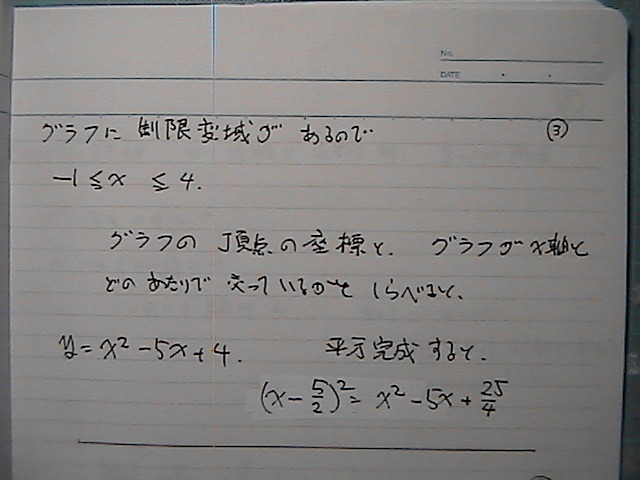 No.
DATE
グラフに制限変域があるので ③
-1 ≦ x ≦ 4.
グラフの頂点の座標と、グラフがx軸と
どのあたりで交っているかをしらべると、
y = x² - 5x + 4. 平方完成すると、
(x - 5/2)² = x² - 5x + 25/4